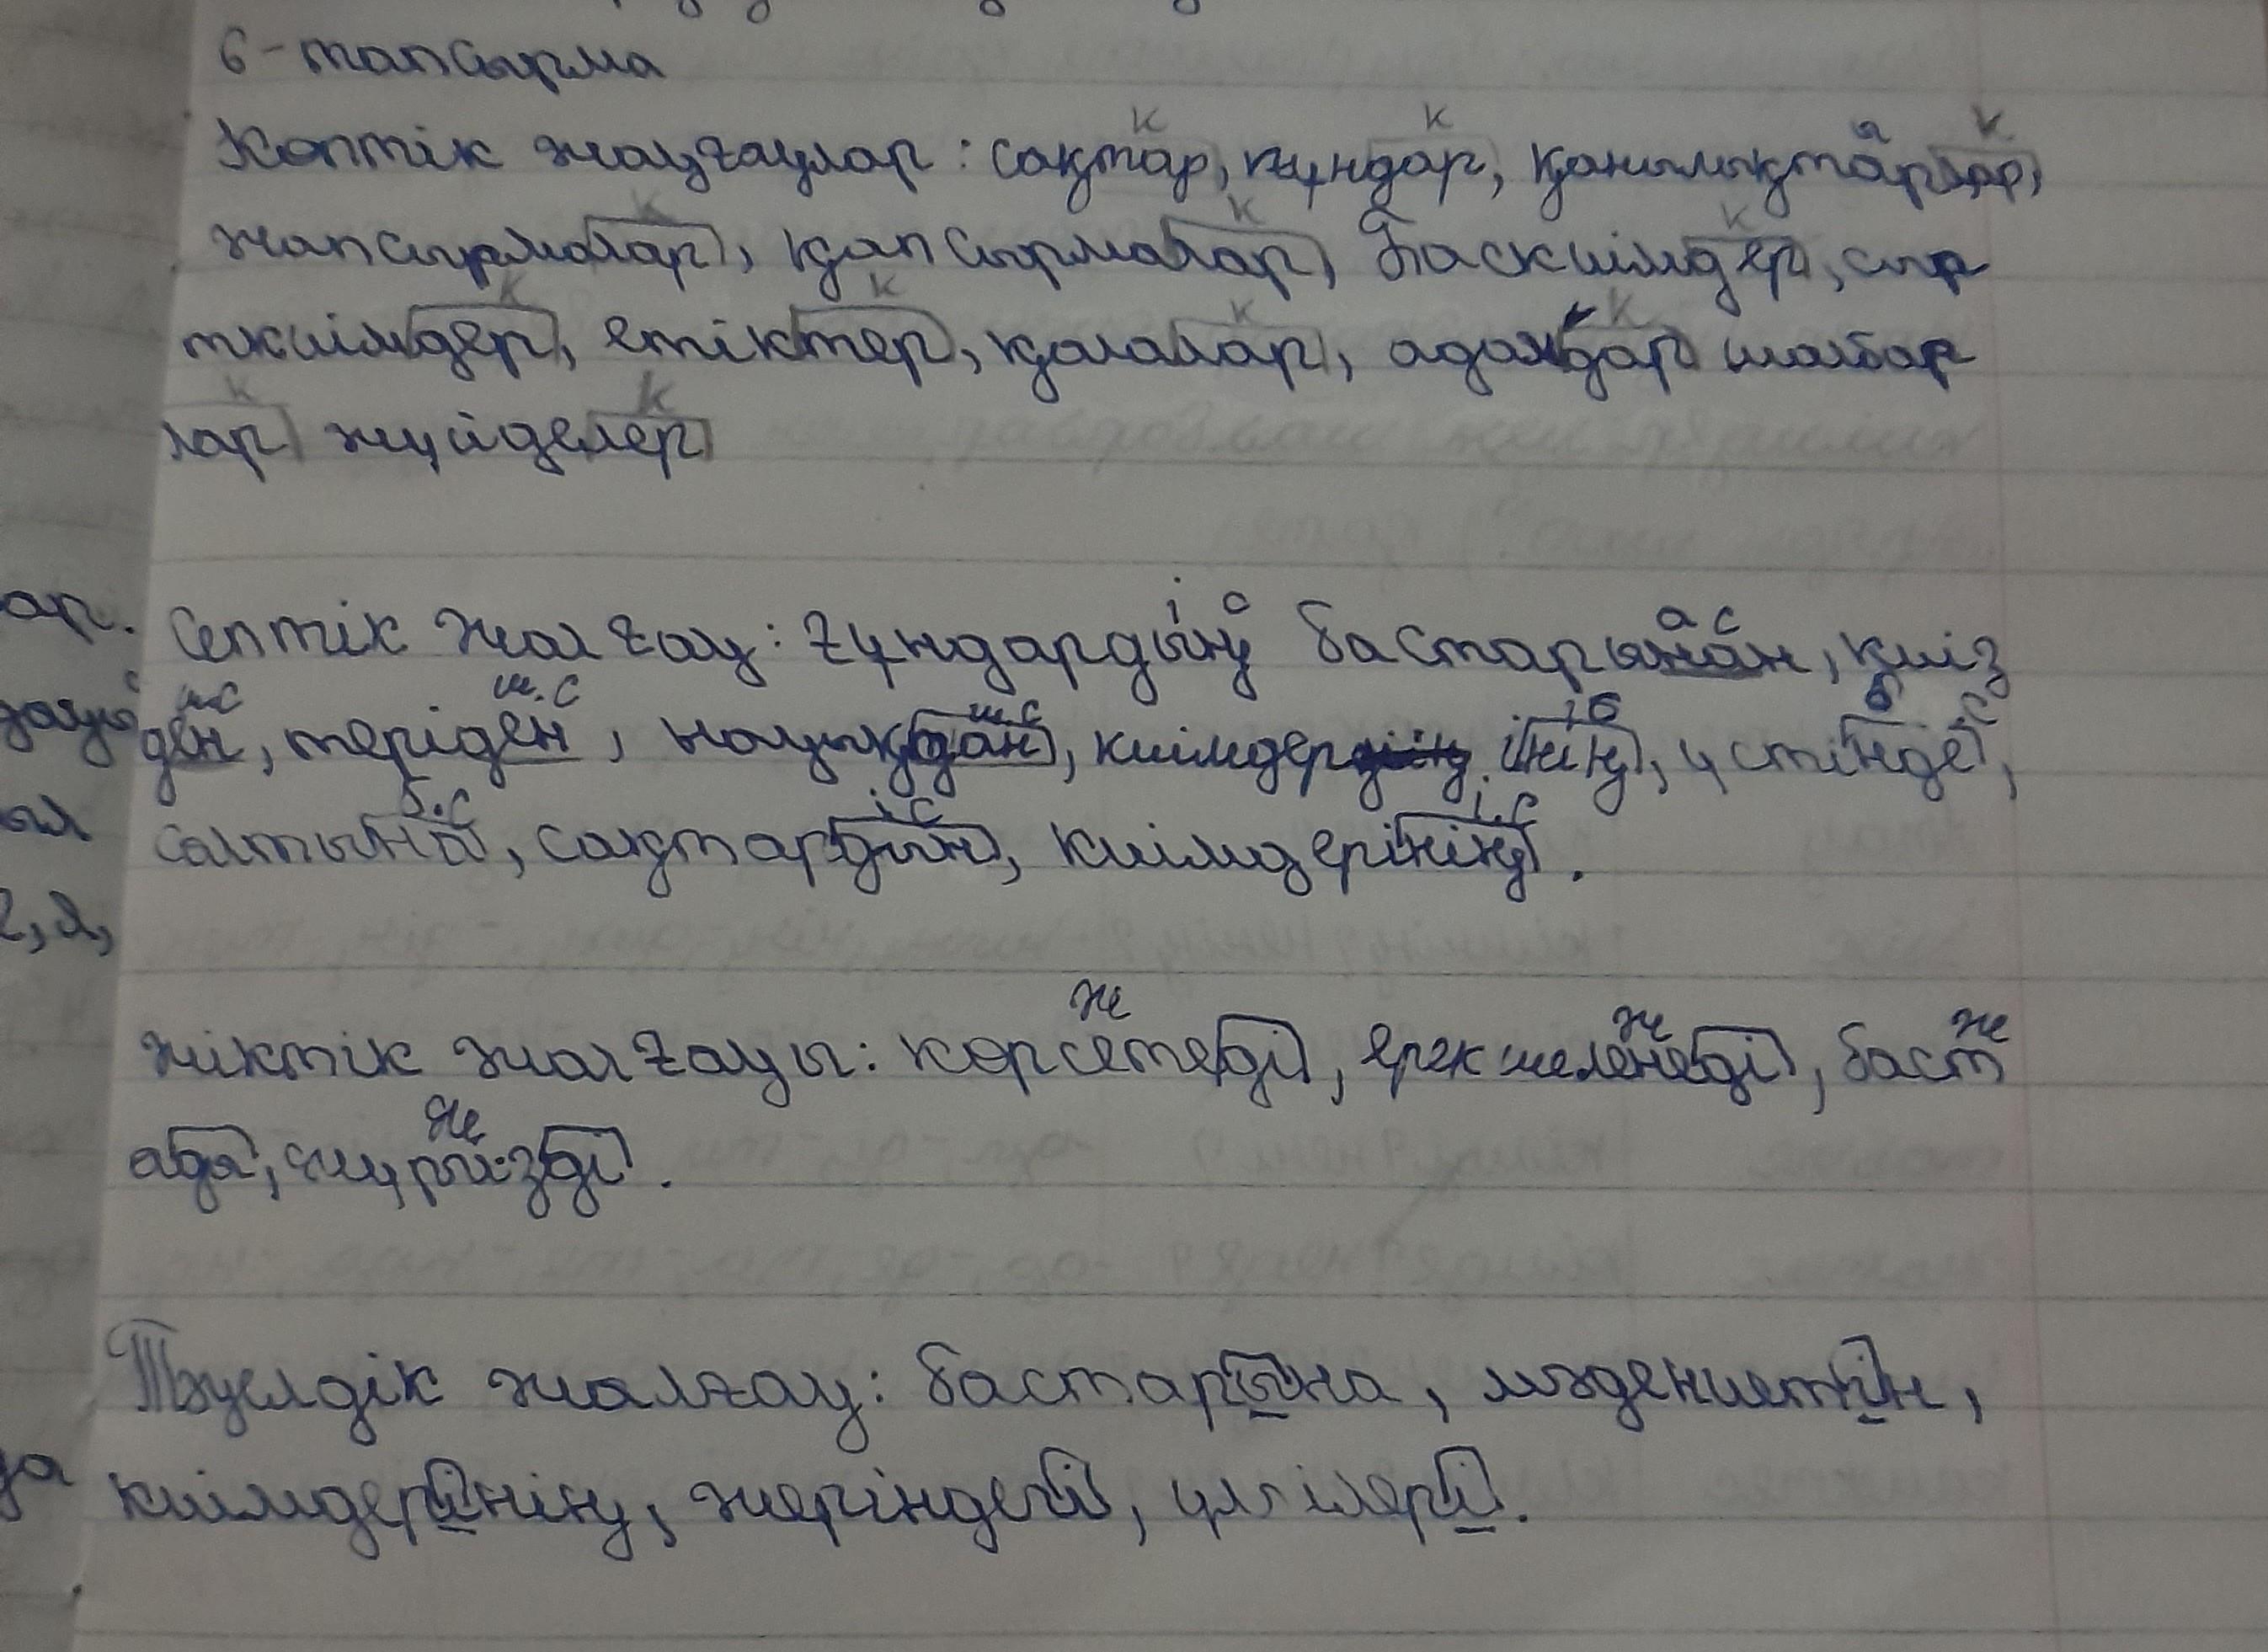 6-тапсырма
Көптік жалғаулар: сақтар, ғұндар, қанышықтар,
жапсырмалар, қапсырмалар, баскиімдер, сыр
ткиімдер, етіктер, қалалар, адамдар шалбар
лар жүйделер
Септік жалғау: ғұндардың бастарынан, киіз
ден, теріден, қиімдер інің, үстінде,
салтыны, сақтардын, киімдерінің.
жіктік жалғауы: көрсетеді, ерекшеленеді, баст
ады, жүргізді.
Тәуелдік жалғау: бастарына, мәдениетін,
киімдерінің, жеріндегі, үлгілері.